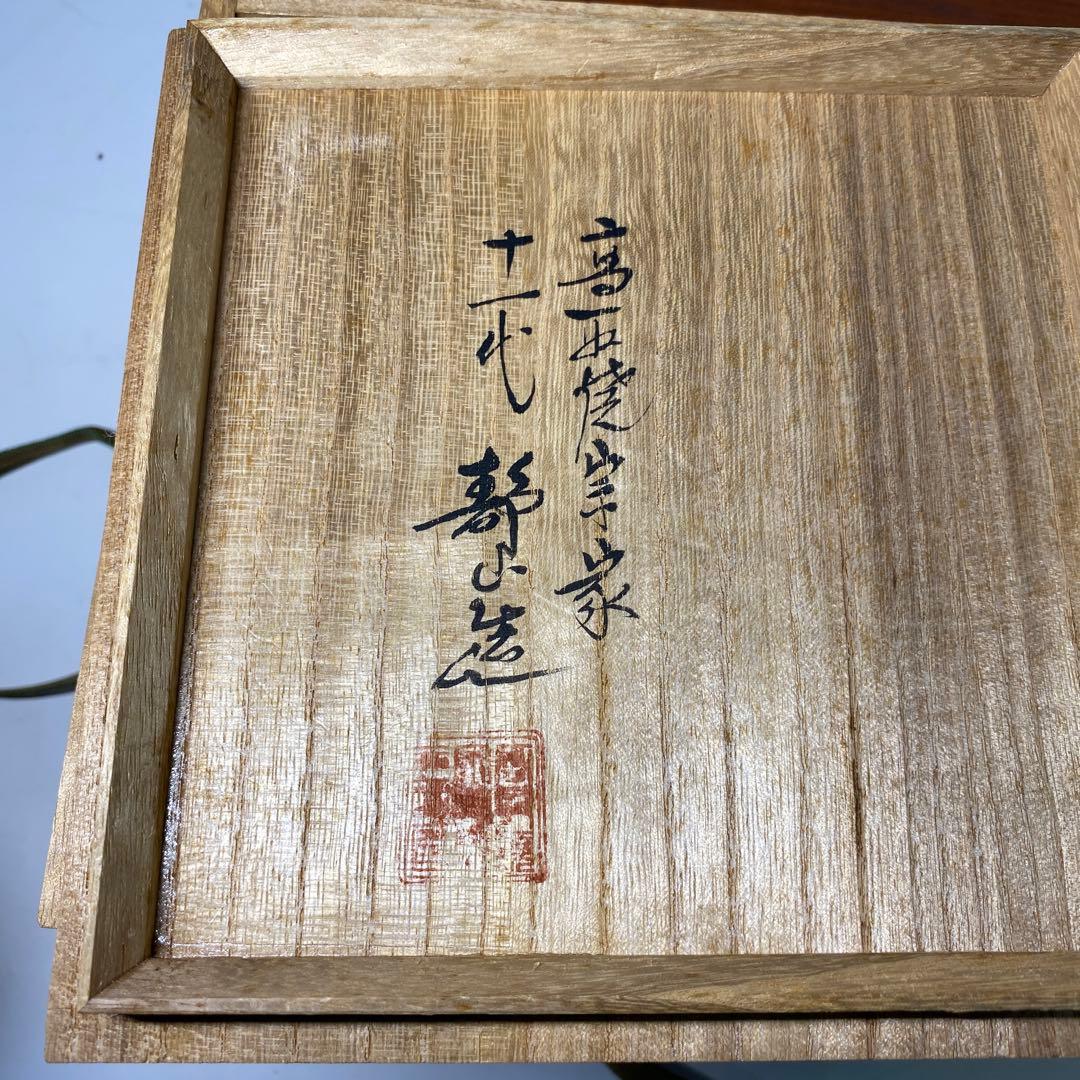 高取焼宗家
十一代 靜山造